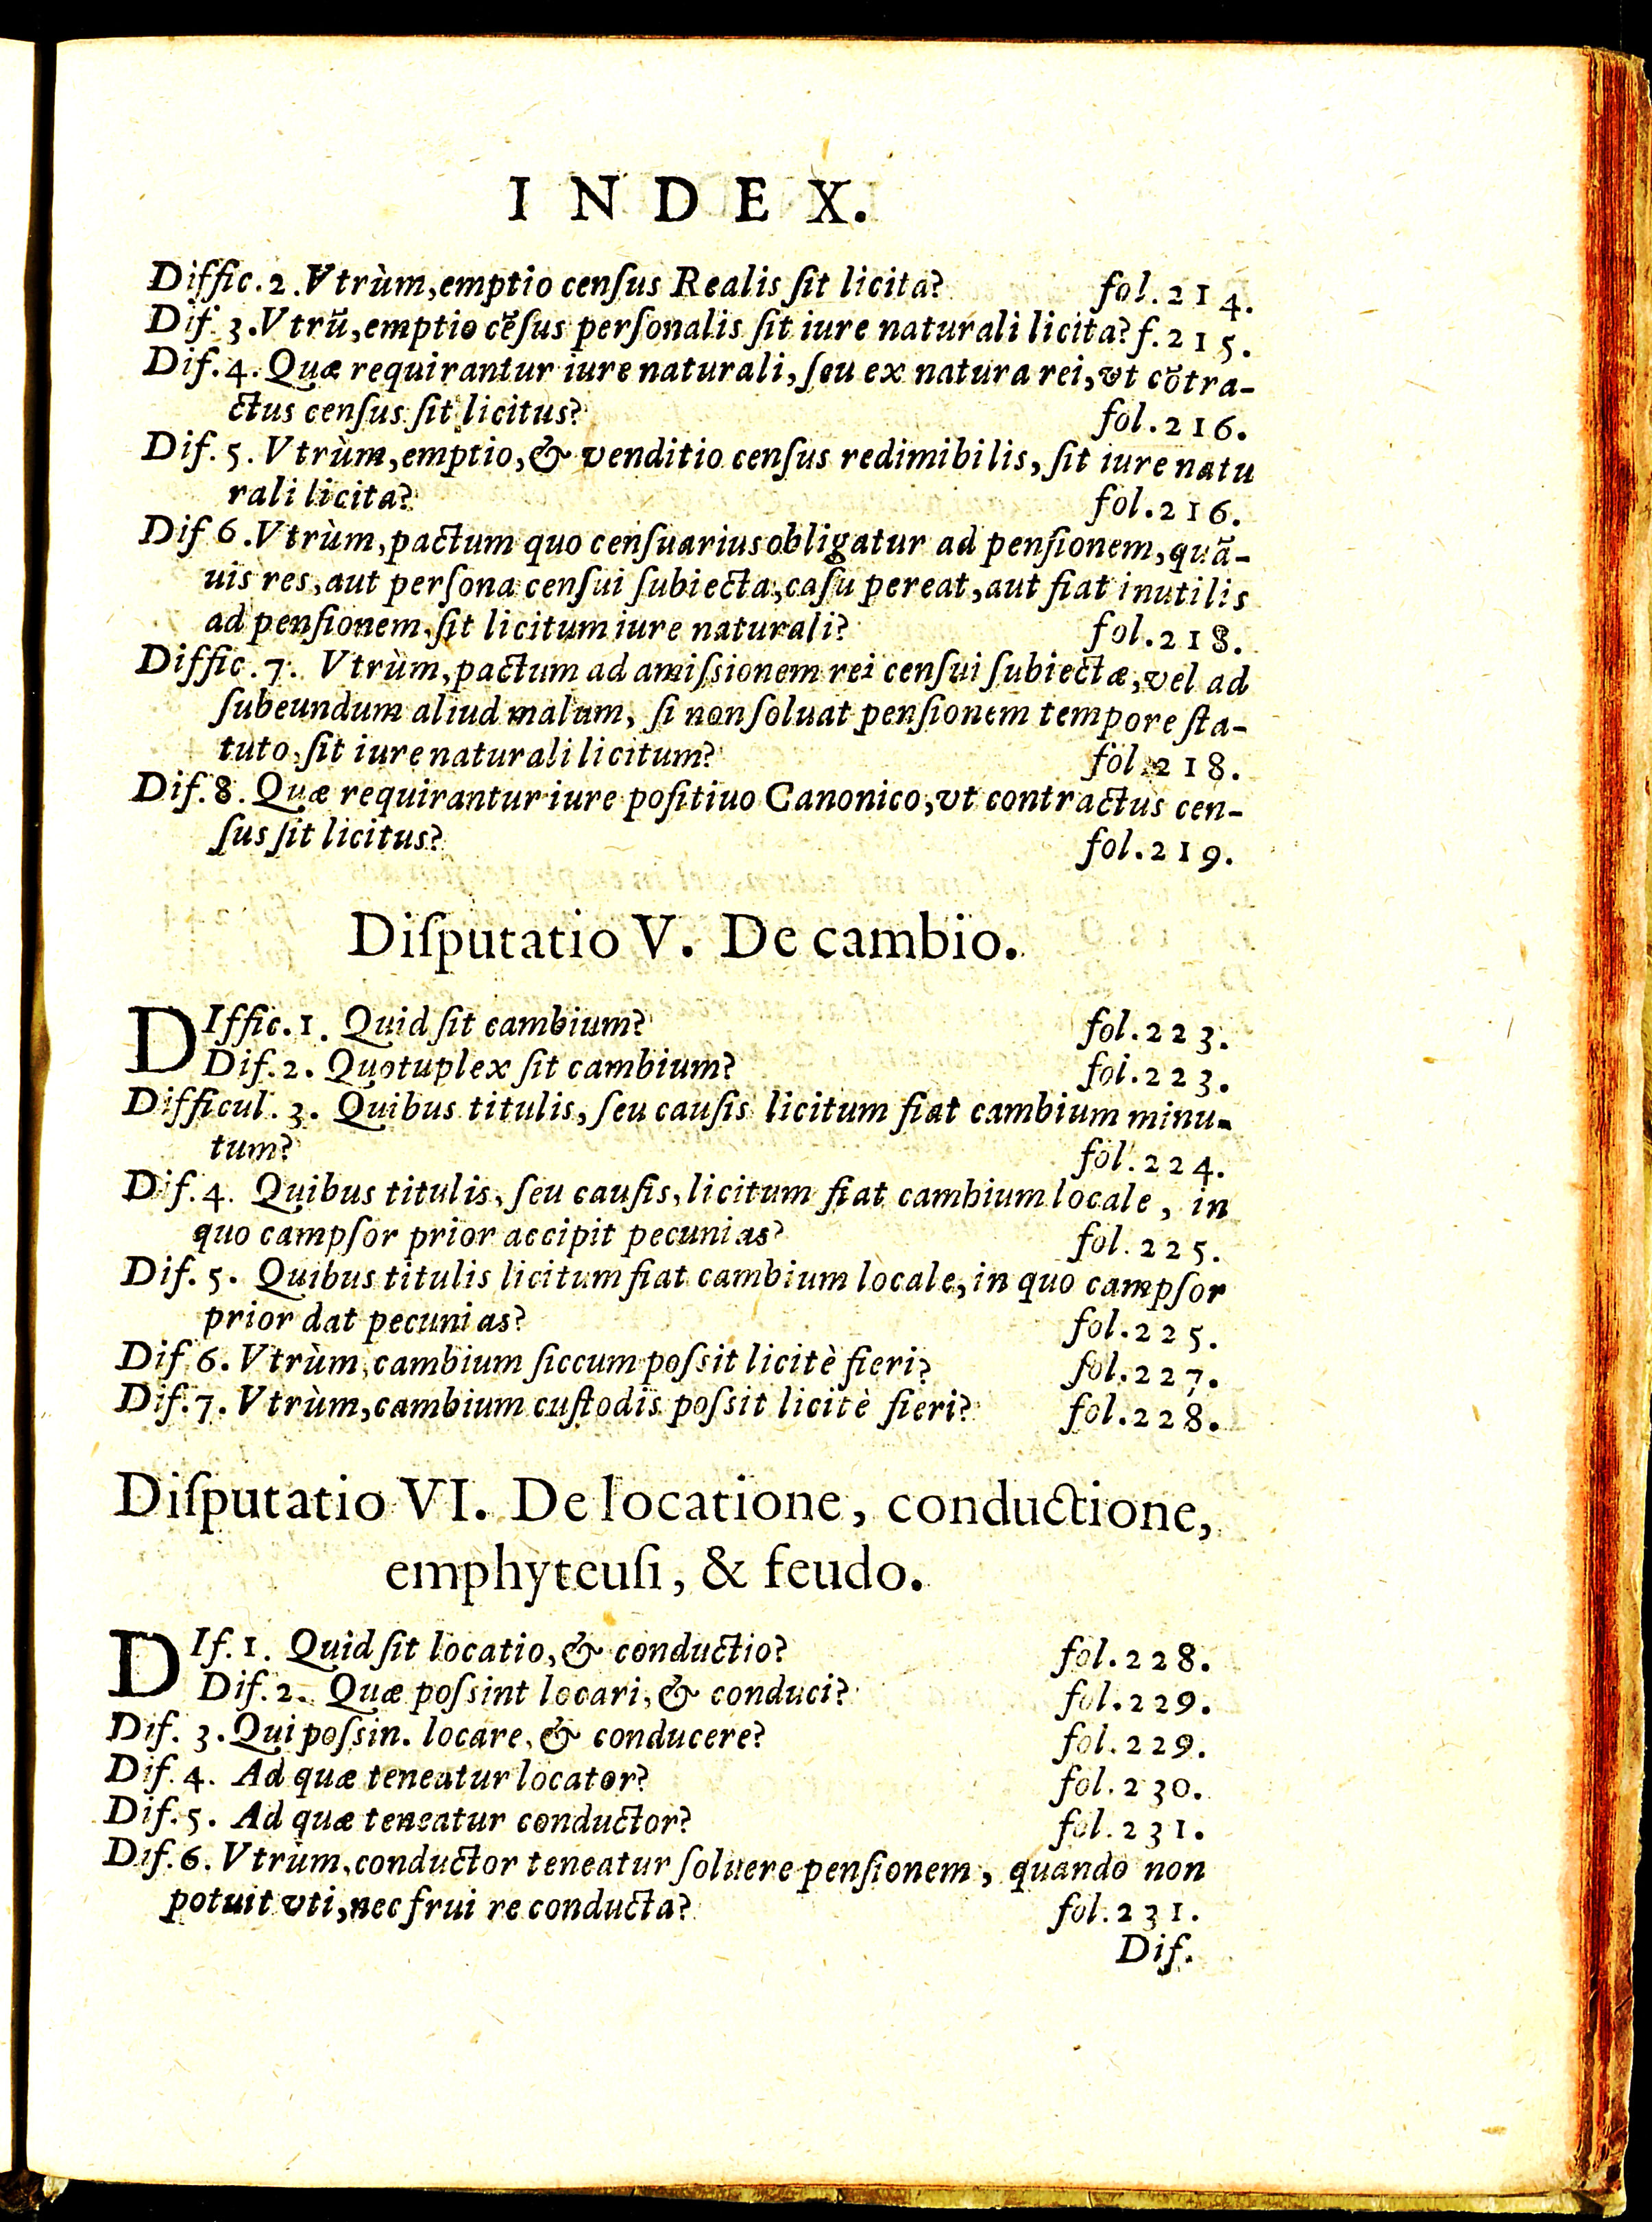 INDEX.
Diffic. 2. Vtrùm, emptio censſus Realis ſit licita? fol. 214.
Dif. 3. Vtrũ, emptio cẽſus perſonalis ſit iure naturali licita? f. 215.
Dif. 4. Quæ requirantur iure naturali, ſeu ex natura rei, vt cõtra-
ctus cenſus ſit licitus? fol. 216.
Dif. 5. Vtrùm, emptio, & venditio cenſus redimibilis, ſit iure natu
rali licita? fol. 216.
Dif 6. Vtrùm, pactum quo cenſuarius obligatur ad penſionem, quã-
uis res, aut perſona cenſui ſubiecta, caſu pereat, aut fiat inutilis
ad penſionem, ſit licitum iure naturali? fol. 218.
Diffic. 7. Vtrùm, pactum ad amiſsionem rei cenſui ſubiectæ, vel ad
ſubeundum aliud malum, ſi non ſoluat penſionem tempore ſta-
tuto, ſit iure naturali licitum? fol. 218.
Dif. 8. Quæ requirantur iure poſitiuo Canonico, vt contractus cen-
ſus ſit licitus? fol. 219.
Diſputatio V. De cambio.
DIffic. 1. Quid ſit cambium? fol. 223.
Dif. 2. Quotuplex ſit cambium? fol. 223.
Difficul. 3. Quibus titulis, ſeu cauſis licitum fiat cambium minu-
tum? fol. 224.
Dif. 4. Quibus titulis, ſeu cauſis, licitum fiat cambium locale, in
quo campſor prior accipit pecunias? fol. 225.
Dif. 5. Quibus titulis licitum fiat cambium locale, in quo campſor
prior dat pecunias? fol. 225.
Dif. 6. Vtrùm, cambium ſiccum poſsit licitè fieri? fol. 227.
Dif. 7. Vtrùm, cambium cuſtodis poſsit licitè fieri? fol. 228.
Diſputatio VI. De locatione, conductione,
emphyteuſi, & feudo.
DIf. 1. Quid ſit locatio, & conductio? fol. 228.
Dif. 2. Quæ poſsint locari, & conduci? fol. 229.
Dif. 3. Qui poſsin. locare, & conducere? fol. 229.
Dif. 4. Ad quæ teneatur locator? fol. 230.
Dif. 5. Ad quæ teneatur conductor? fol. 231.
Dif. 6. Vtrùm, conductor teneatur ſoluere penſionem, quando non
potuit vti, nec frui re conducta? fol. 231.
Dif.